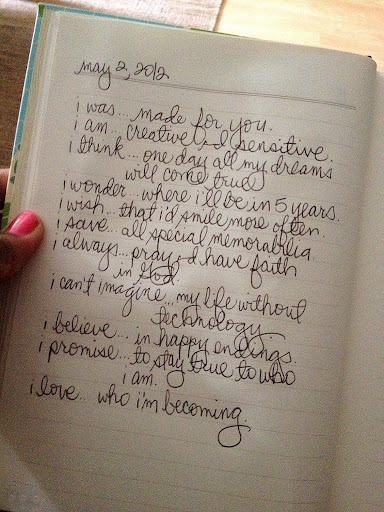 may 2, 2012
i was... made for you.
i am... creative and sensitive.
i think... one day all my dreams
will come true
i wonder... where i'll be in 5 years.
i wish... that i'd smile more often.
i save... all special memorabilia.
i always... pray and have faith
in God.
i can't imagine... my life without
technology
i believe... in happy endings.
i promise... to stay true to who
i am.
i love... who i'm becoming.